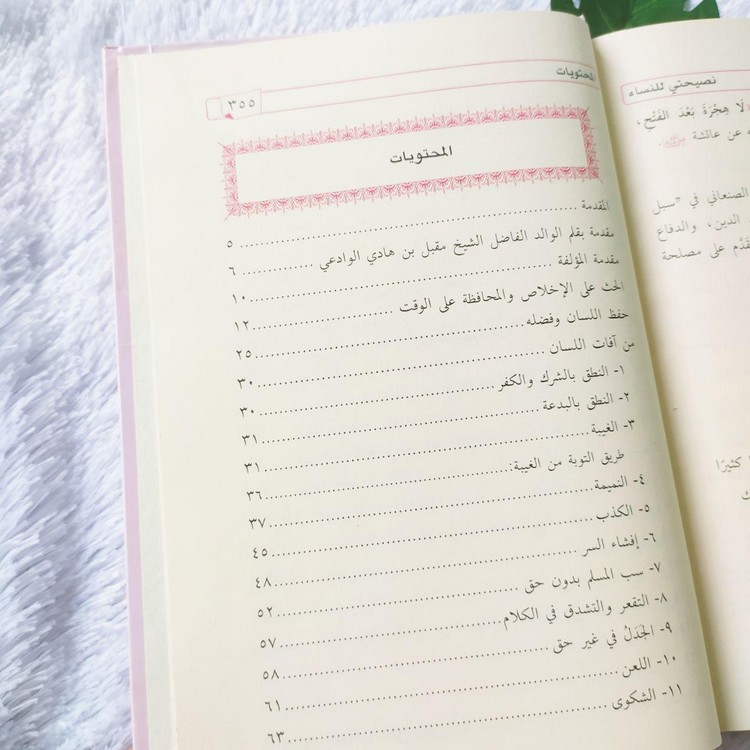 نصيحتي للنساء
لَا هِجْرَةَ بَعْدَ الفَتْحِ،
عن عائشة
الصنعاني في «سبل
الدين، والدفاع
على مصلحة
كثيرًا
المحتويات
٣٥٥
المحتويات
المقدمة ........ ٥
مقدمة بقلم الوالد الفاضل الشيخ مقبل بن هادي الوادعي ........ ٦
مقدمة المؤلفة ........ ١٠
الحث على الإخلاص والمحافظة على الوقت ........ ١٢
حفظ اللسان وفضله ........ ٢٥
من آفات اللسان ........ ٣٠
١- النطق بالشرك والكفر ........ ٣٠
٢- النطق بالبدعة ........ ٣١
٣- الغيبة ........ ٣١
طريق التوبة من الغيبة: ........ ٣٦
٤- النميمة ........ ٣٧
٥- الكذب ........ ٤٥
٦- إفشاء السر ........ ٤٨
٧- سب المسلم بدون حق ........ ٥٢
٨- التقعر والتشدق في الكلام ........ ٥٧
٩- الجَدَلُ في غير حق ........ ٥٨
١٠- اللعن ........ ٦١
١١- الشكوى ........ ٦٣